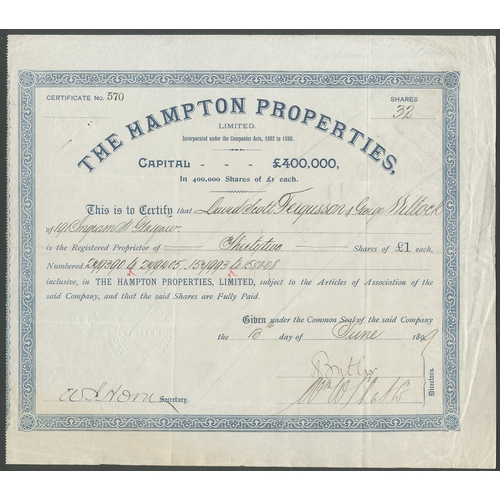 CERTIFICATE NO. 570
SHARES
32
THE HAMPTON PROPERTIES,
LIMITED.
Incorporated under the Companies Acts, 1862 to 1890.
CAPITAL - - - £400,000,
In 400,000 Shares of £1 each.
This is to Certify that David Scott Fergusson & George Willock
of Ingram St Glasgow
is the Registered Proprietor of Thirtytwo Shares of £1 each,
Numbered to
inclusive, in THE HAMPTON PROPERTIES, LIMITED, subject to the Articles of Association of the
said Company, and that the said Shares are Fully Paid.
Given under the Common Seal of the said Company
the 13th day of June 189
Secretary.
Directors.